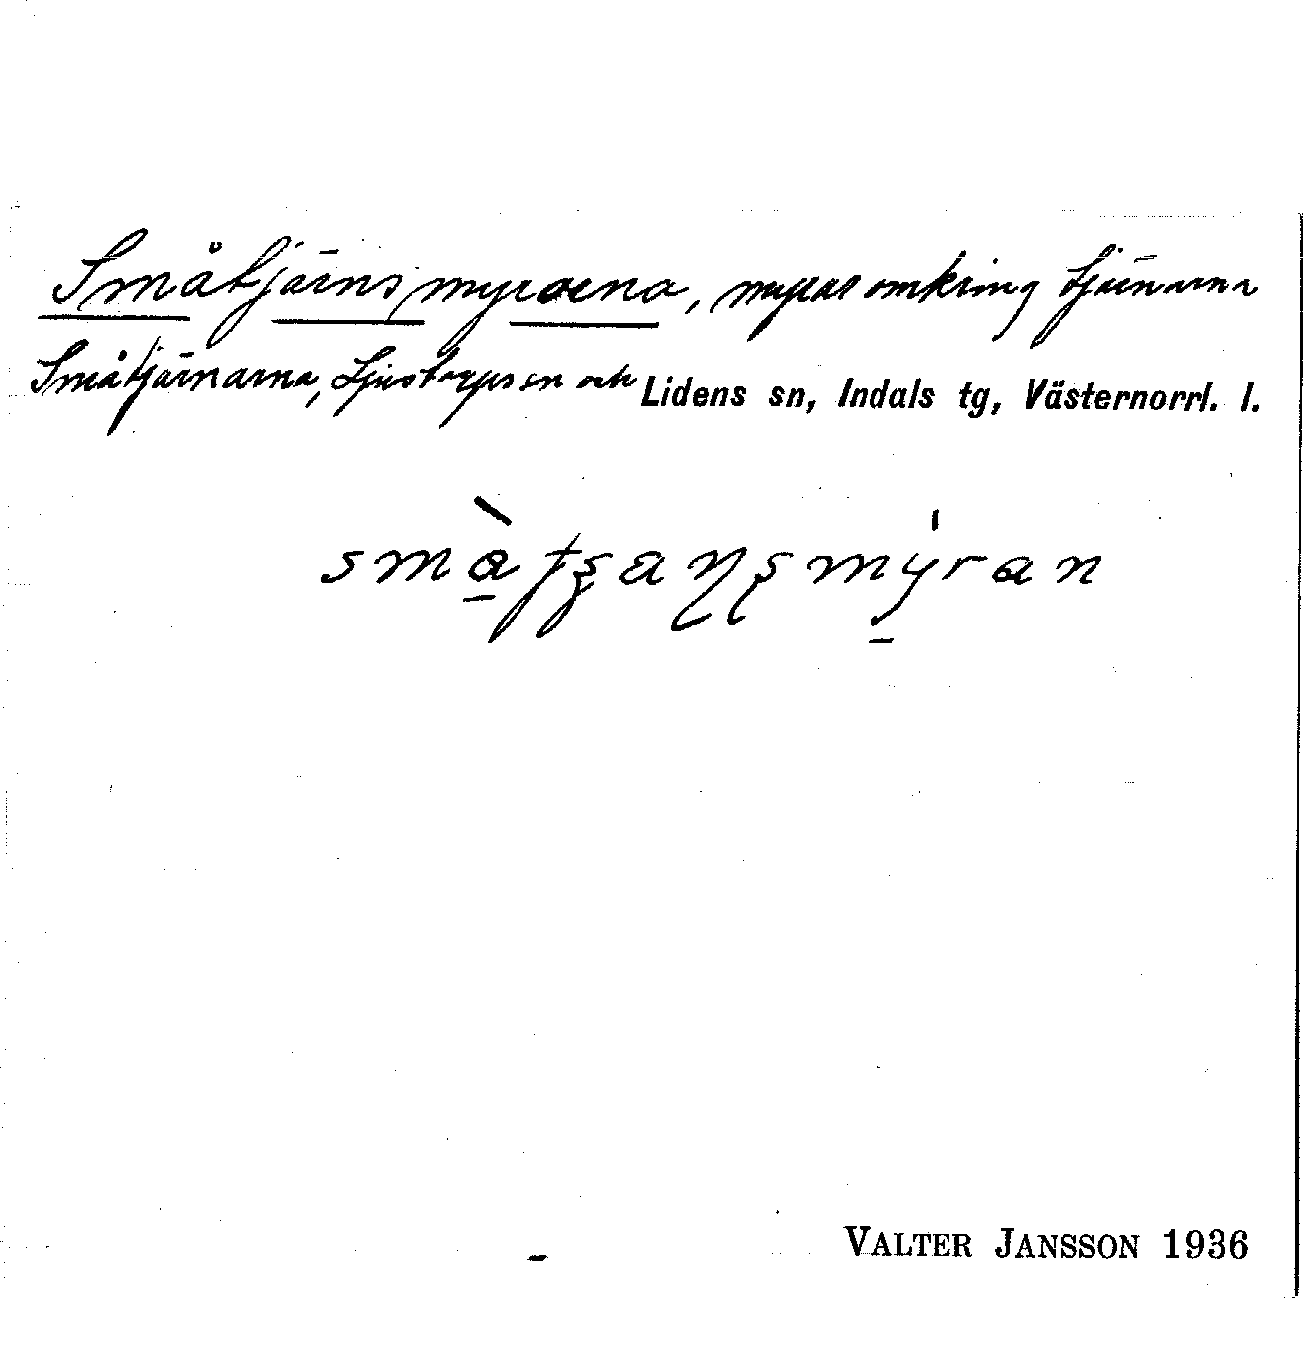 Småtjärnsmyrorna, myrar omkring tjärnarna
Småtjärnarna, Ljustorps sn och Lidens sn, Indals tg, Västernorrl. l.
VALTER JANSSON 1936